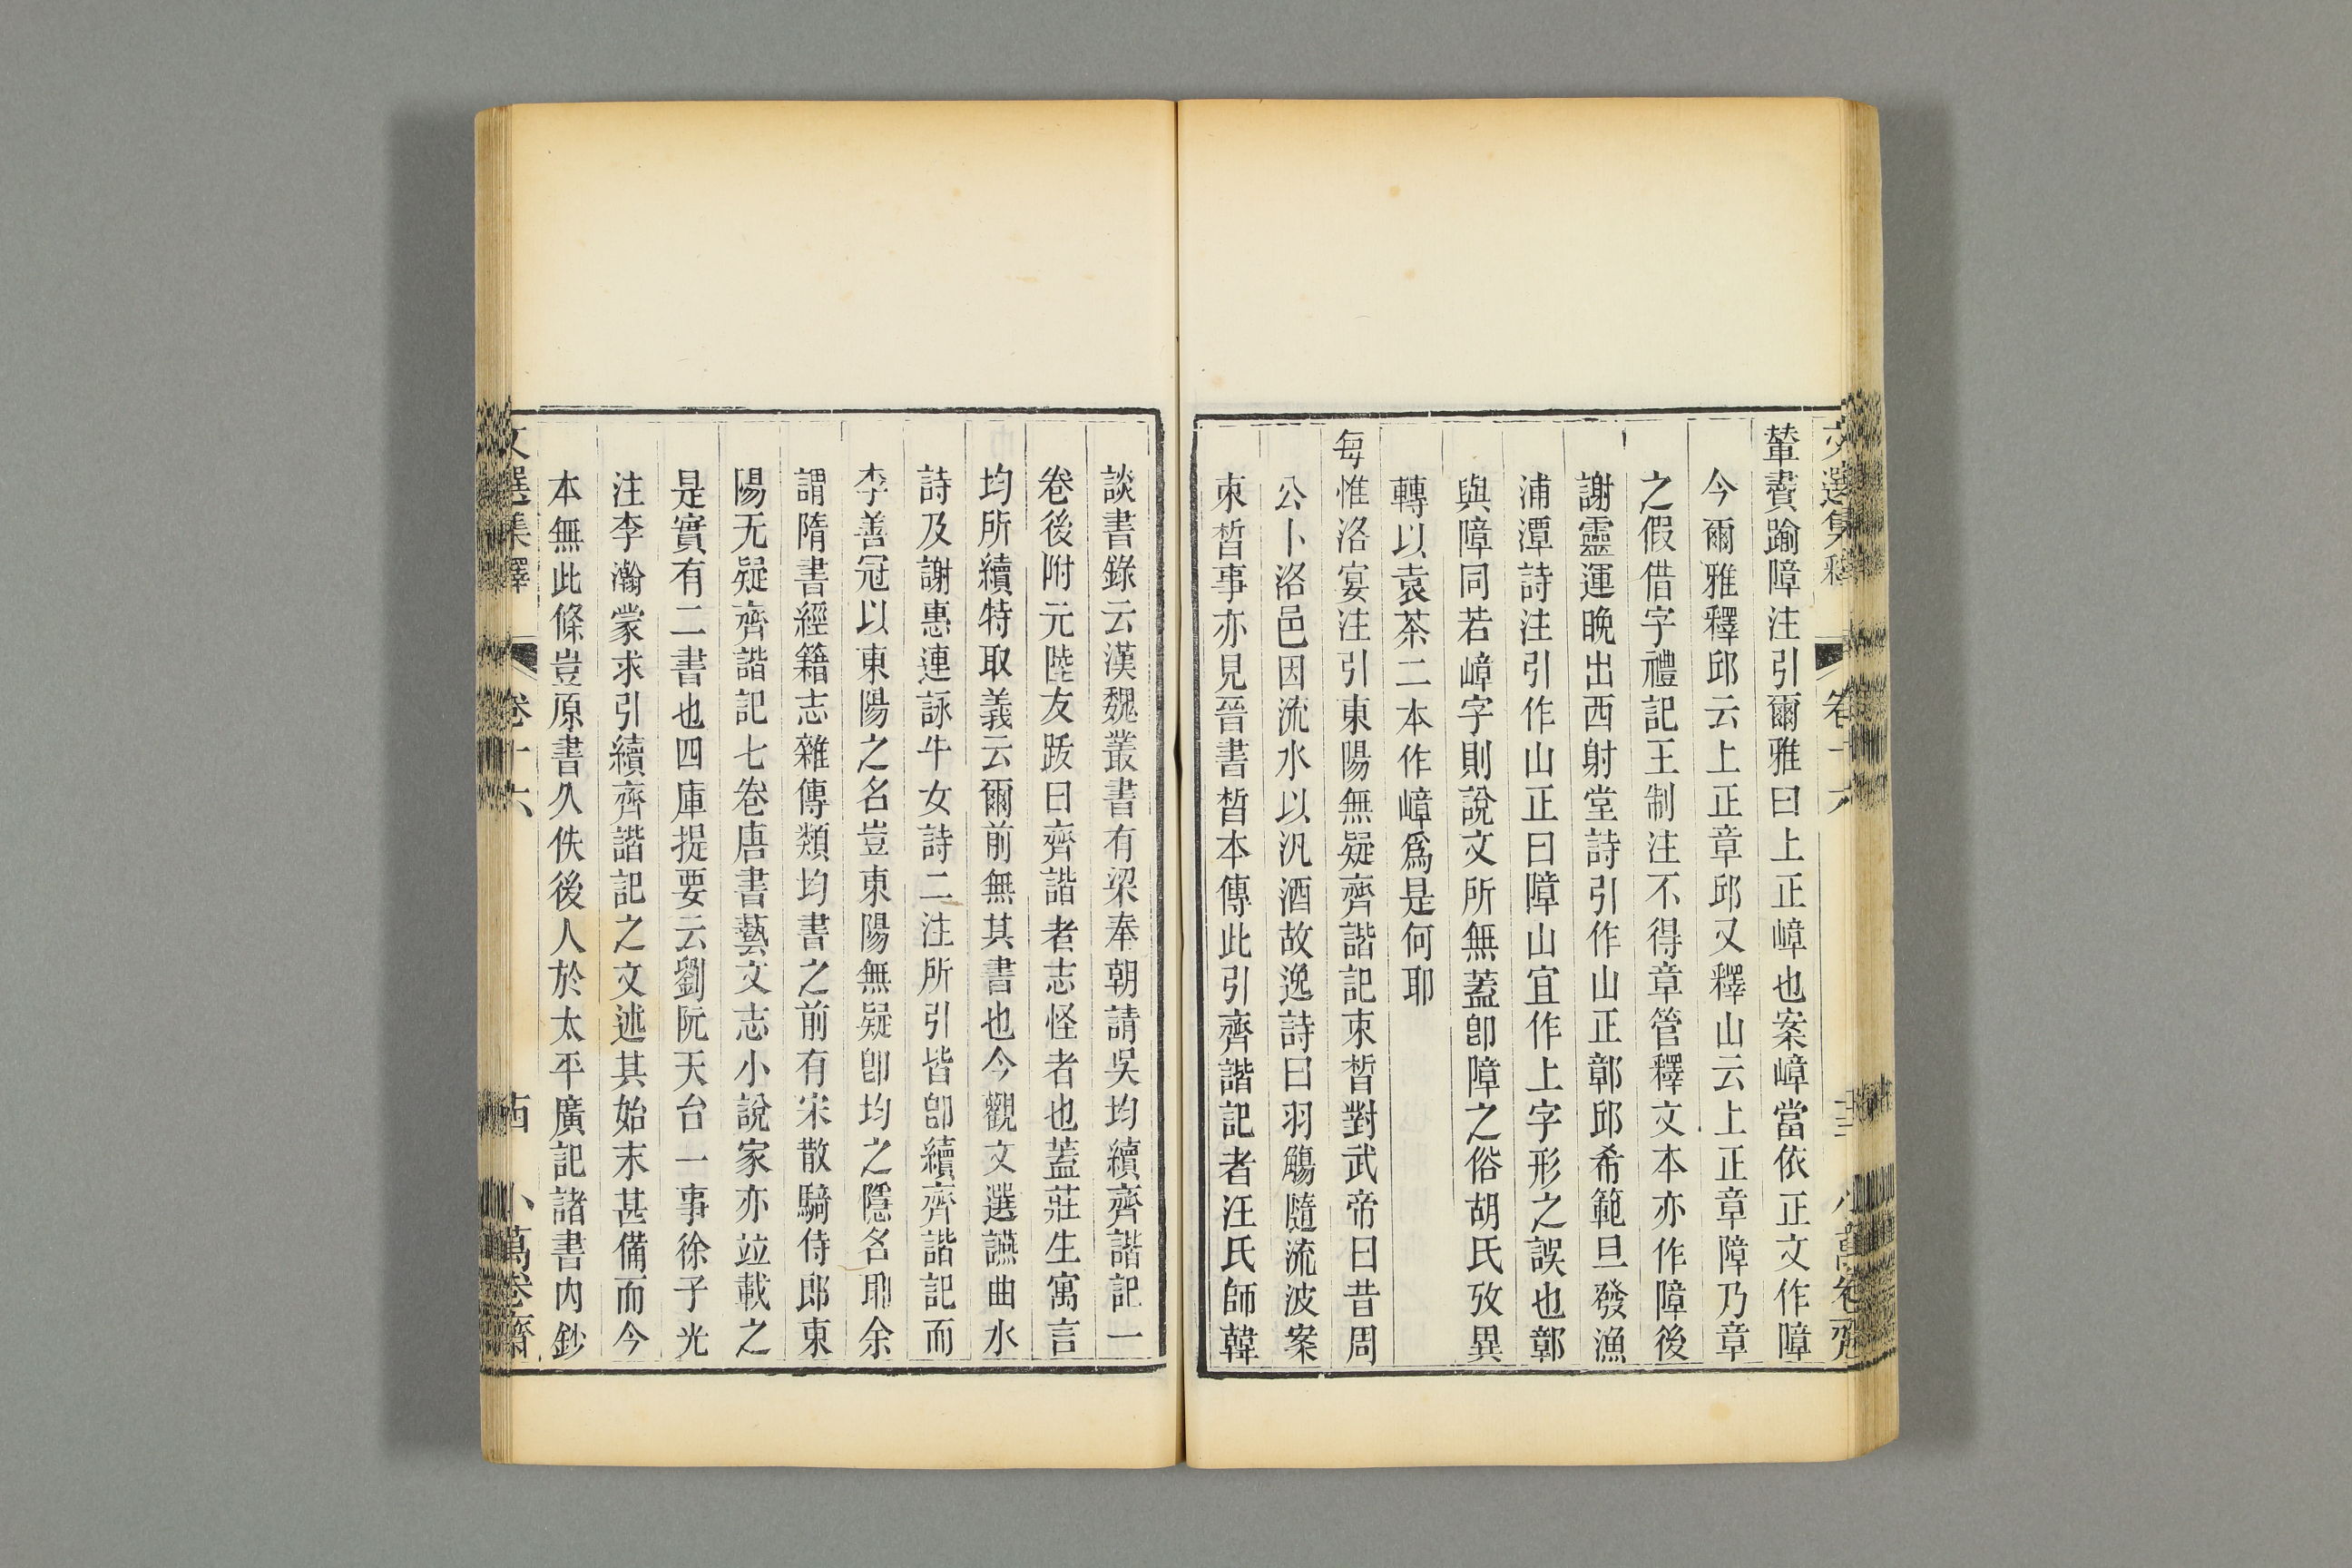 文選集釋 卷十六 十三 小萬卷齋
輦賮踰障注引爾雅曰上正嶂也案嶂當依正文作障
今爾雅釋邱云上正章邱又釋山云上正章障乃章
之假借字禮記王制注不得章管釋文本亦作障後
謝靈運晚出西射堂詩引作山正鄣邱希範旦發漁
浦潭詩注引作山正曰障山宜作上字形之誤也鄣
與障同若嶂字則說文所無蓋卽障之俗胡氏攷異
轉以袁茶二本作嶂爲是何耶
每惟洛宴注引東陽無疑齊諧記束晳對武帝曰昔周
公卜洛邑因流水以汎酒故逸詩曰羽觴隨流波案
束晳事亦見晉書晳本傳此引齊諧記者汪氏師韓
談書錄云漢魏叢書有梁奉朝請吳均續齊諧記一
卷後附元陸友跋曰齊諧者志怪者也蓋莊生寓言
均所續特取義云爾前無其書也今觀文選讌曲水
詩及謝惠連詠牛女詩二注所引皆卽續齊諧記而
李善冠以東陽之名豈東陽無疑卽均之隱名耶余
謂隋書經籍志雜傳類均書之前有宋散騎侍郎東
陽无疑齊諧記七卷唐書藝文志小說家亦竝載之
是實有二書也四庫提要云劉阮天台一事徐子光
注李瀚蒙求引續齊諧記之文述其始末甚備而今
本無此條豈原書久佚後人於太平廣記諸書內鈔
文選集釋 卷十六 茜 小萬卷齋